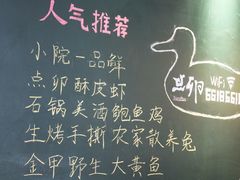 人气推荐
小院一品鲜
点卯酥皮虾
石锅美酒鲍鱼鸡
生烤手撕农家散养兔
金甲野生大黄鱼
点卯
WiFi